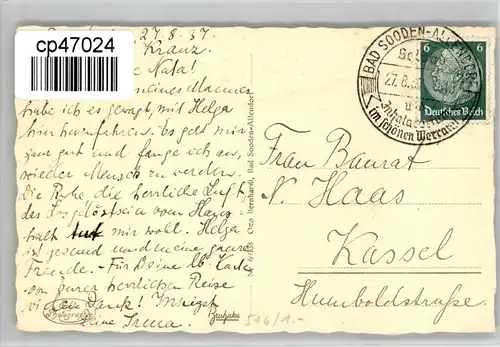 cp47024
27.8.37.
Kranz.
Nata!
meines Mannes
habe ich es gewagt, mit Helga
hierherzufahren. Es geht mir
ganz gut und fange ich an,
wieder Mensch zu werden.
Die Ruhe, die herrliche Luft
das Losgelöstsein vom Haus-
halt tut mir wohl. Helga
ist gesund und meine ganze
Freude. – Für Deine lb. Karte
von Eurer herrlichen Reise
vielen Dank! Innigst
Deine Irma.
Otto Bernhardt, Bad Sooden-Allendorf
Bruhaka
516/1.-
BAD SOODEN-ALLENDORF
27.8.
im schönen Werratal
6 6
Deutsches Reich
Frau Baurat
N. Haas
Kassel
Humboldtstraße.